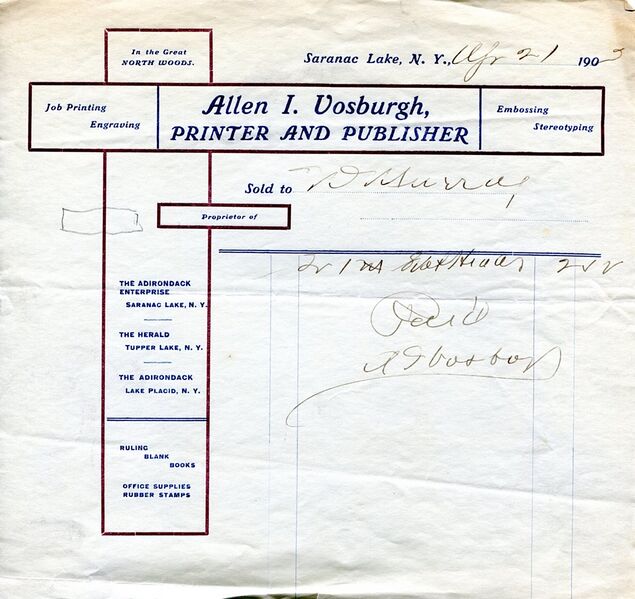 In the Great
NORTH WOODS.
Saranac Lake, N. Y., Apr 21 1903
Job Printing
Engraving
Allen I. Vosburgh,
PRINTER AND PUBLISHER
Embossing
Stereotyping
Sold to W Murray
Proprietor of
1 M Heads
Paid
A I Vosburgh
THE ADIRONDACK
ENTERPRISE
SARANAC LAKE, N. Y.
THE HERALD
TUPPER LAKE, N. Y.
THE ADIRONDACK
LAKE PLACID, N. Y.
RULING
BLANK
BOOKS
OFFICE SUPPLIES
RUBBER STAMPS